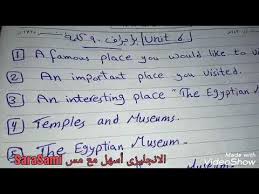 براجراف ٩٠ كلمة Unit 6
1 A famous place you would like to vi
2 An important place you visited.
3 An interesting place "The Egyptian M
4 Temples and Museums.
5 The Egyptian Museum.
الانجليزى أسهل مع مس SaraSami
Made with
VideoShow